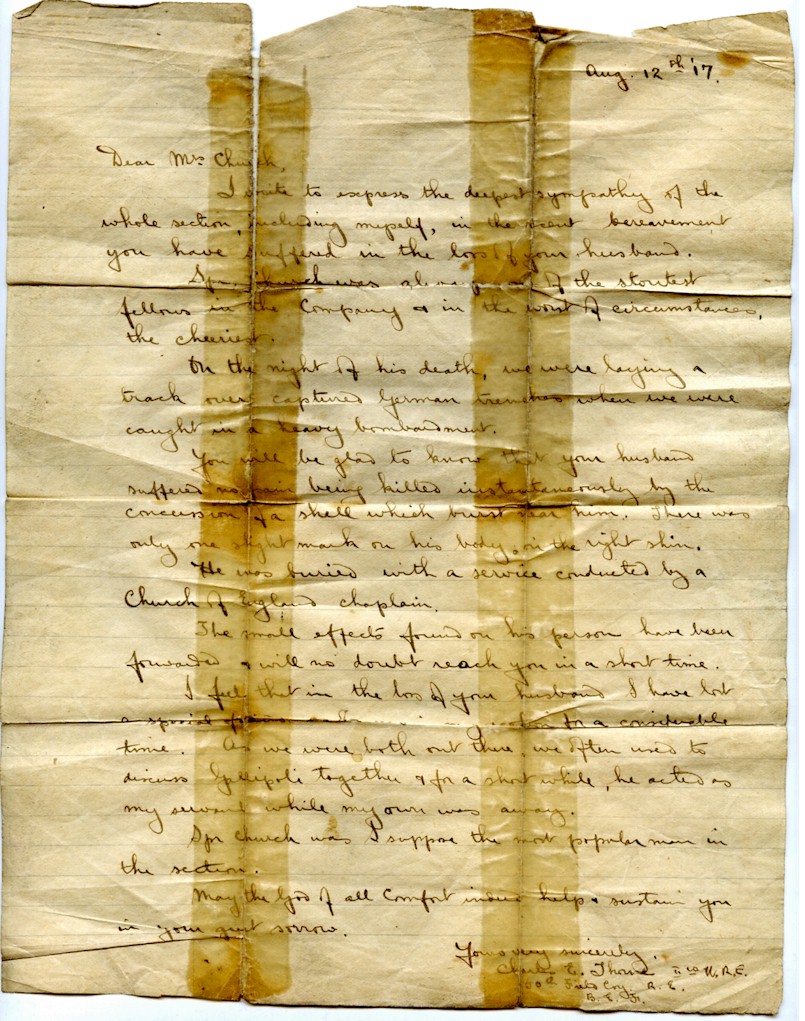 Aug. 12th '17.
Dear Mrs Church,
I write to express the deepest sympathy of the
whole section, including myself, in the recent bereavement
you have suffered in the loss of your husband.
Spr. Church was always one of the stoutest
fellows in the Company & in the worst of circumstances,
the cheeriest.
On the night of his death, we were laying a
track over captured German trenches when we were
caught in a heavy bombardment.
You will be glad to know that your husband
suffered no pain being killed instantaneously by the
concussion of a shell which burst near him. There was
only one slight mark on his body, on the right shin.
He was buried with a service conducted by a
Church of England chaplain.
The small effects found on his person have been
forwarded & will no doubt reach you in a short time.
I feel that in the loss of your husband I have lost
a special for a considerable
time. As we were both out there, we often used to
discuss Gallipoli together & for a short while, he acted as
my servant while my own was away.
Spr Church was I suppose the most popular man in
the section.
May the God of all Comfort indeed help & sustain you
in your great sorrow.
Yours very sincerely,
Charles E. Thorne R.E.
Field Coy. R.E.
B.E.F.